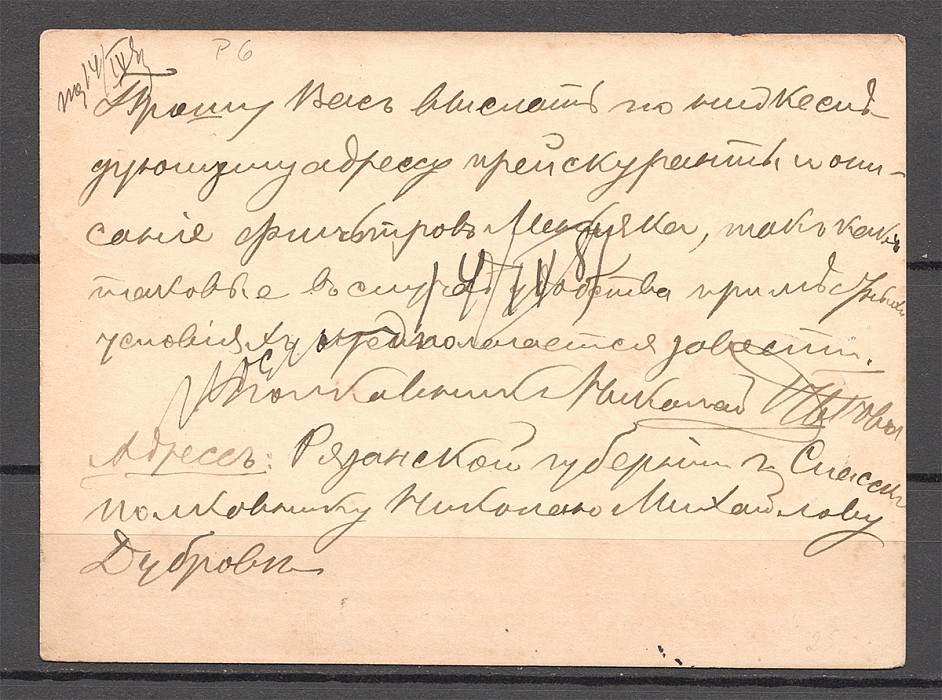 Р6
Прошу Васъ выслать по нижеслѣ-
дующему адресу прейскурантъ и опи-
саніе фильтровъ Мальняка, такъ какъ
таковые въ случаѣ удобства примѣ
условіяхъ предполагается завести.
14/IV 8
Полковникъ Николай
Адрессъ: Рязанской губерніи г. Спасскъ
полковнику Николаю Михайлову
Дубровкѣ